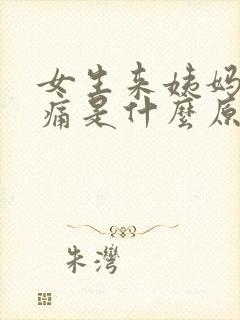 女生来姨妈
痛是什麼原
朱灣